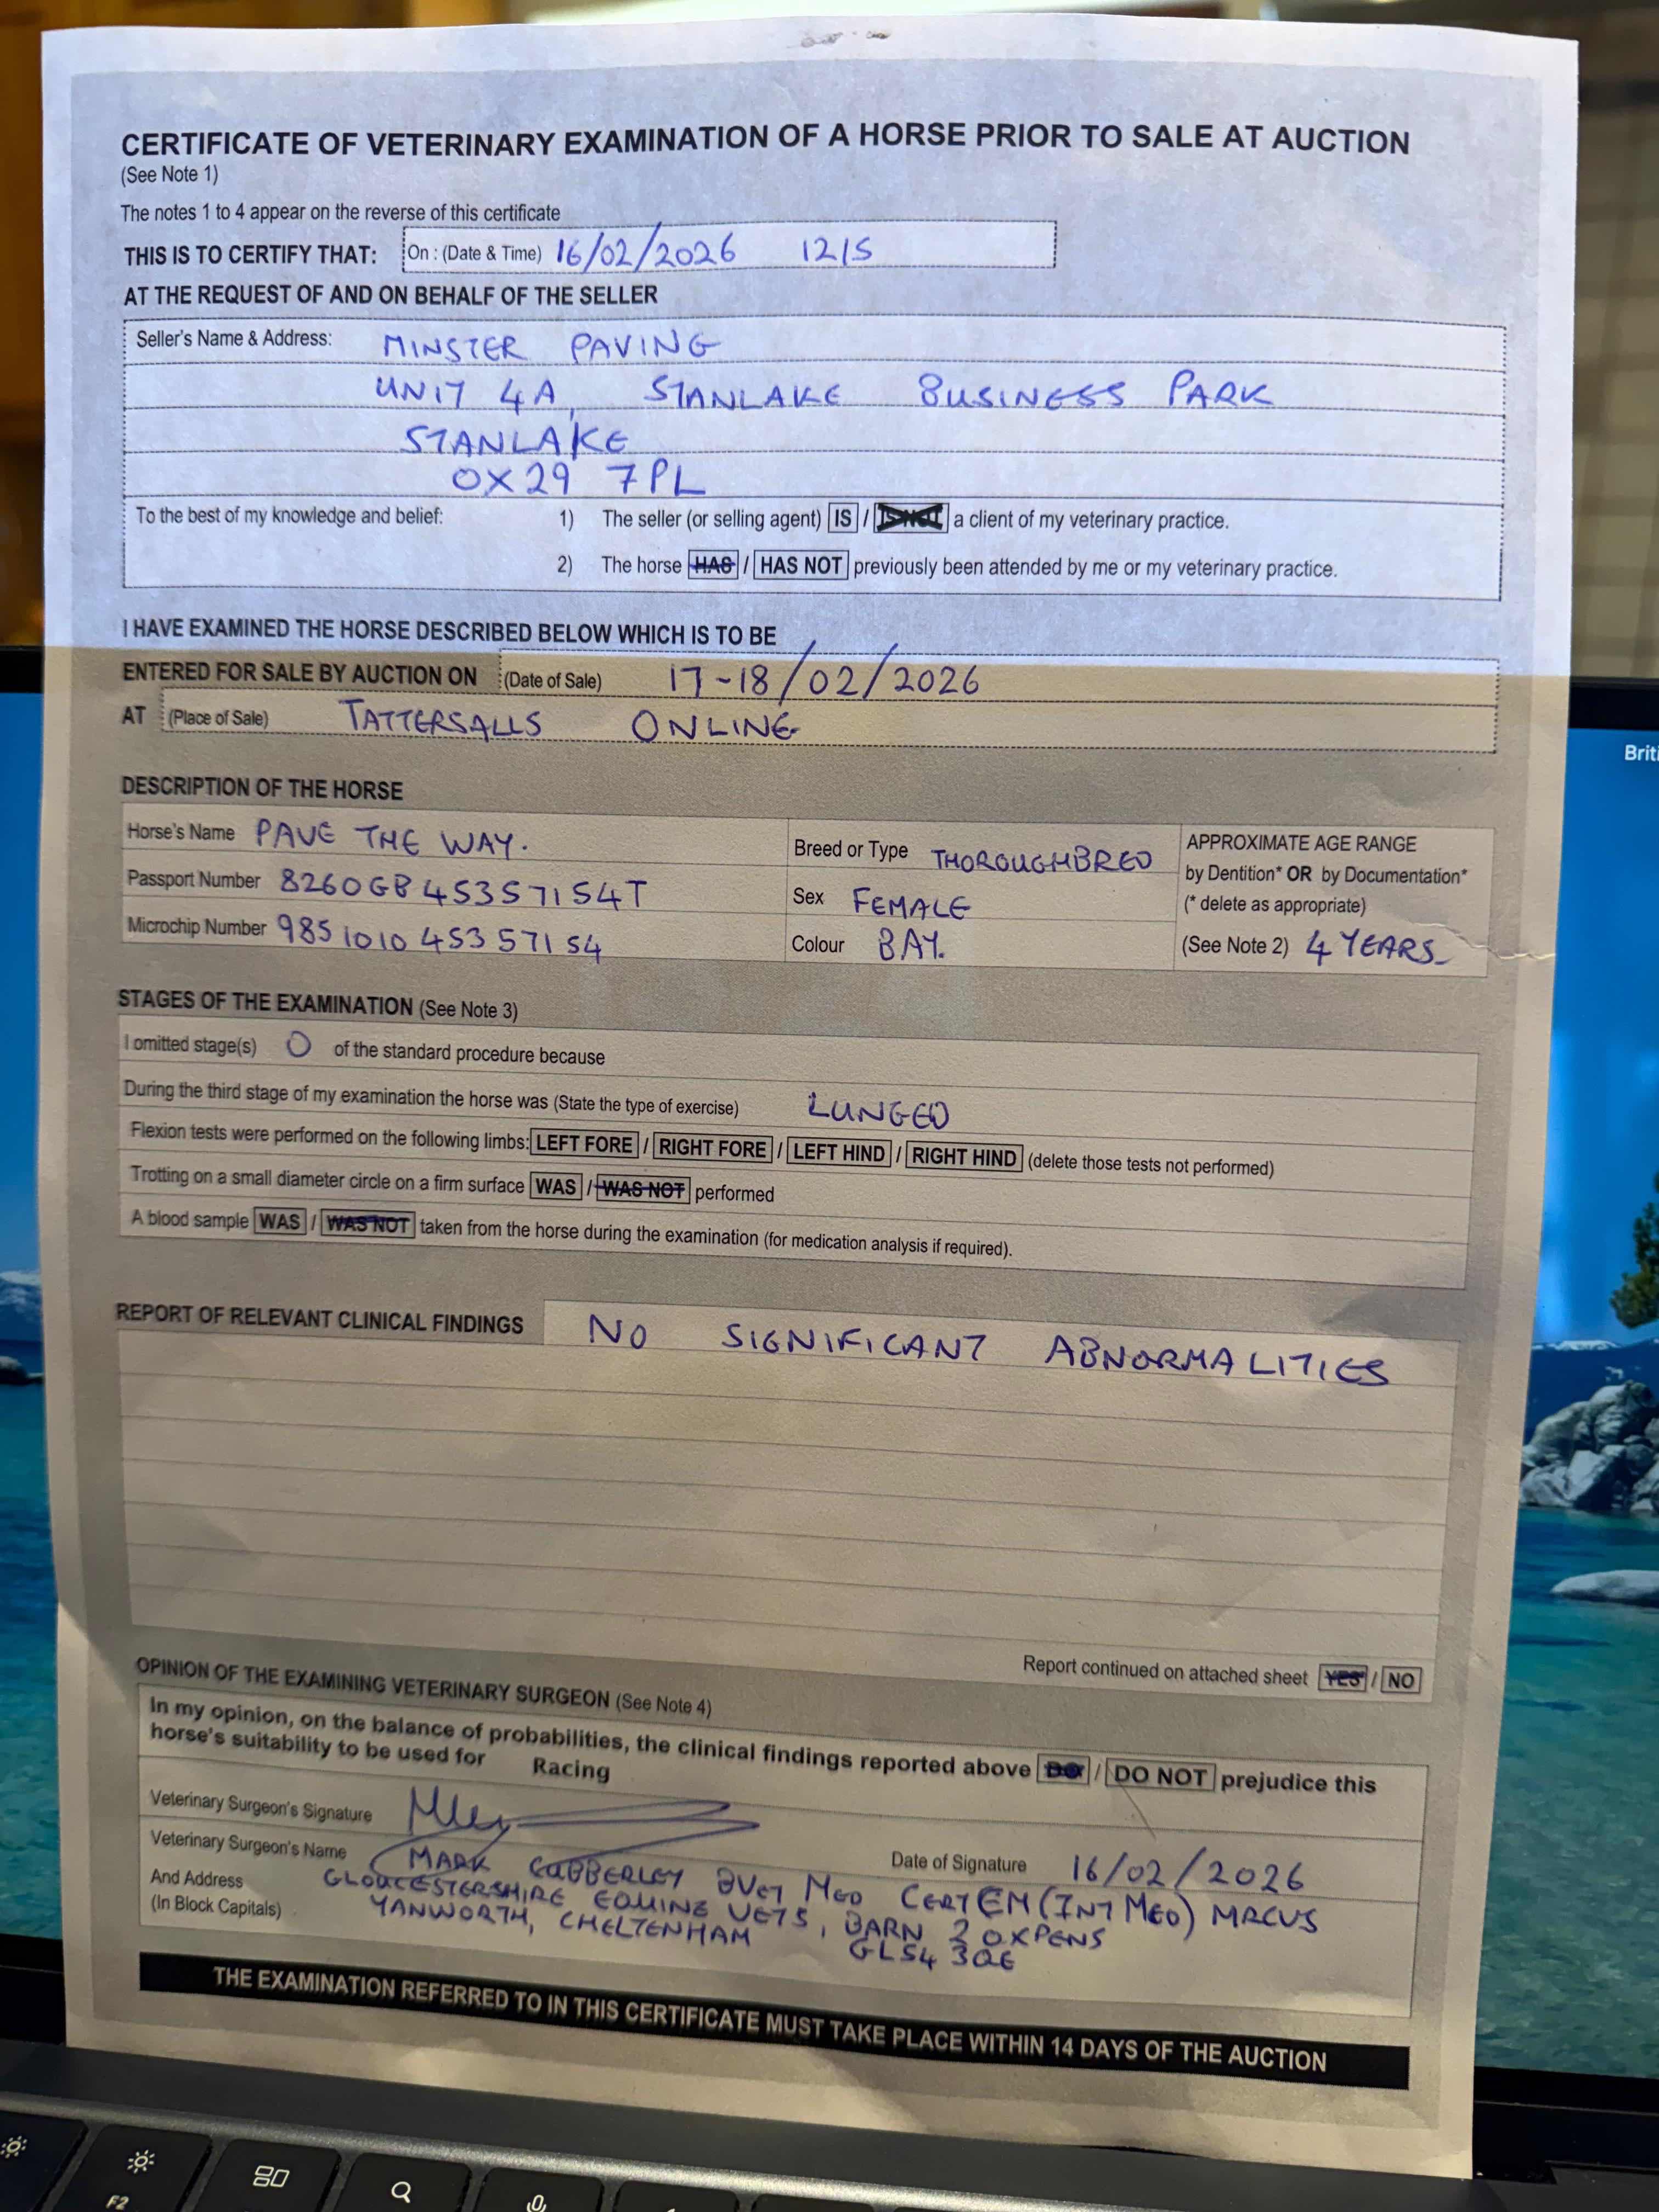 CERTIFICATE OF VETERINARY EXAMINATION OF A HORSE PRIOR TO SALE AT AUCTION
(See Note 1)
The notes 1 to 4 appear on the reverse of this certificate
THIS IS TO CERTIFY THAT: On : (Date & Time) 16/02/2026 1215
AT THE REQUEST OF AND ON BEHALF OF THE SELLER
Seller's Name & Address: MINSTER PAVING
UNIT 4A, STANLAKE BUSINESS PARK
STANLAKE
OX29 7PL
To the best of my knowledge and belief: 1) The seller (or selling agent) IS / IS NOT a client of my veterinary practice.
2) The horse HAS / HAS NOT previously been attended by me or my veterinary practice.
I HAVE EXAMINED THE HORSE DESCRIBED BELOW WHICH IS TO BE
ENTERED FOR SALE BY AUCTION ON (Date of Sale) 17-18/02/2026
AT (Place of Sale) TATTERSALLS ONLINE
Briti
DESCRIPTION OF THE HORSE
Horse's Name PAVE THE WAY.
Passport Number 8260GB45357154T
Microchip Number 985101045357154
Breed or Type THOROUGHBRED
Sex FEMALE
Colour BAY.
APPROXIMATE AGE RANGE
by Dentition* OR by Documentation*
(* delete as appropriate)
(See Note 2) 4 YEARS
STAGES OF THE EXAMINATION (See Note 3)
I omitted stage(s) O of the standard procedure because
During the third stage of my examination the horse was (State the type of exercise) LUNGED
Flexion tests were performed on the following limbs: LEFT FORE / RIGHT FORE / LEFT HIND / RIGHT HIND (delete those tests not performed)
Trotting on a small diameter circle on a firm surface WAS / WAS NOT performed
A blood sample WAS / WAS NOT taken from the horse during the examination (for medication analysis if required).
REPORT OF RELEVANT CLINICAL FINDINGS NO SIGNIFICANT ABNORMALITIES
Report continued on attached sheet YES / NO
OPINION OF THE EXAMINING VETERINARY SURGEON (See Note 4)
In my opinion, on the balance of probabilities, the clinical findings reported above DO / DO NOT prejudice this
horse's suitability to be used for Racing
Veterinary Surgeon's Signature
Date of Signature 16/02/2026
Veterinary Surgeon's Name
And Address
(In Block Capitals)
MARK CUBBERLEY BVET MED CERT EM (INT MED) MRCVS
GLOUCESTERSHIRE EQUINE VETS, BARN 2 OXPENS
YANWORTH, CHELTENHAM GL54 3QE
THE EXAMINATION REFERRED TO IN THIS CERTIFICATE MUST TAKE PLACE WITHIN 14 DAYS OF THE AUCTION
F2